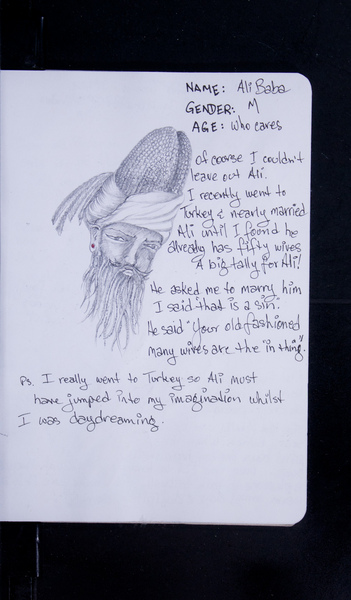 NAME: Ali Baba
GENDER: M
AGE: Who cares
Of course I couldn't
leave out Ali.
I recently went to
Turkey & nearly married
Ali until I found he
already has fifty wives
A big tally for Ali!
He asked me to marry him
I said "that is a sin".
He said "Your old fashioned
many wives are the in thing."
Ps. I really went to Turkey so Ali must
have jumped into my imagination whilst
I was daydreaming.